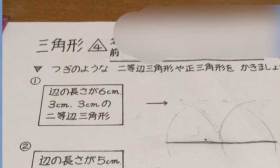 三角形 4
前
▼ つぎのような 二等辺三角形や正三角形を かきましょ
①
辺の長さが6cm
3cm、3cmの
二等辺三角形
②
辺の長さが5cm